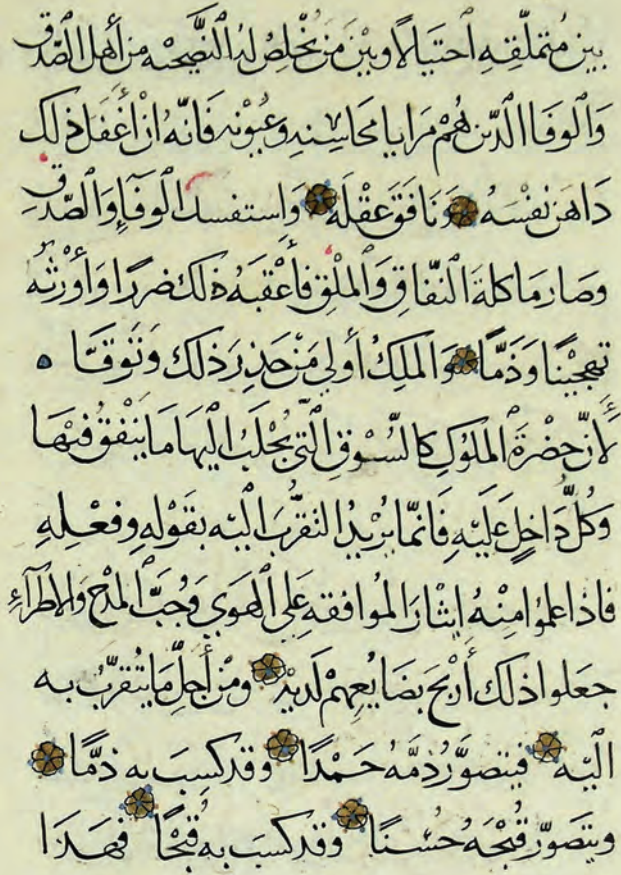 بين مُتملّقِهِ ٱحتيالًا وبَيْن مَن يُخْلِصُ لهُ ٱلنَّصِيحه من أهل ٱلصّدق
وَٱلوفَا الّذين هُمْ مَرايا محَاسِنِه وعُيُوْبه فَانّه ان أغفَل ذلك
دَاهَن نَفْسَهُ وَنَافَقَ عَقْلَهُ وَاستفسد ٱلوفَآء وَٱلصّدق
وصَار مَا كلةَ ٱلنّفاق وَٱلمَلْق فأعْقبَهُ ذلك ضررًا وَأورثهُ
تهجْينًا وَذَمًّا وَٱلملِكُ أولى مَنْ حَذِرَ ذلك وَتَوقّا
لأنّ حضْرةَ ٱلملُوك كالسُّوْق ٱلّتي يُجْلَبُ اليهَا مَا ينفق فيْهَا
وَكُلُّ دَاخِلٍ عَليْهِ فَانّما يُريْدُ التقرّبَ اليْه بقَوْلهِ وفعْلِهِ
فاذا علموُا منْهُ ايثارَ ٱلمُوافقه عَلى ٱلهَوى وَحُبَّ ٱلمدْح وَالاطرآءِ
جعَلوا ذلك أَرْبحَ بضَايُعِهِمْ لَديْهِ ومنْ أجَلِّ مَا يُتقرّبُ به
اليْه فيتصوَّرُ ذمّهُ حَمْدًا وقد كسِبَ به ذمًّا
ويتصَوّر قُبْحَهُ حُسْنًا وقد كسَبَ به قُبْحًا فهَذا